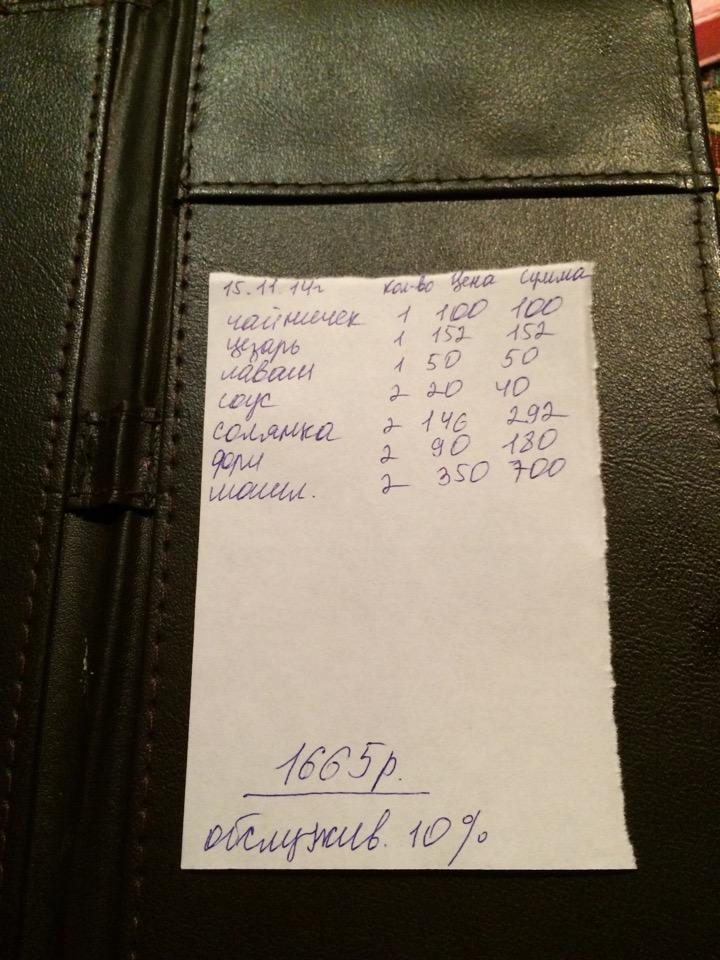 15.11.14г кол-во Цена Сумма
чайничек 1 100 100
цезарь 1 152 152
лаваш 1 50 50
соус 2 20 40
солянка 2 146 292
фри 2 90 180
шашл. 2 350 700
1665р.
обслужив. 10%